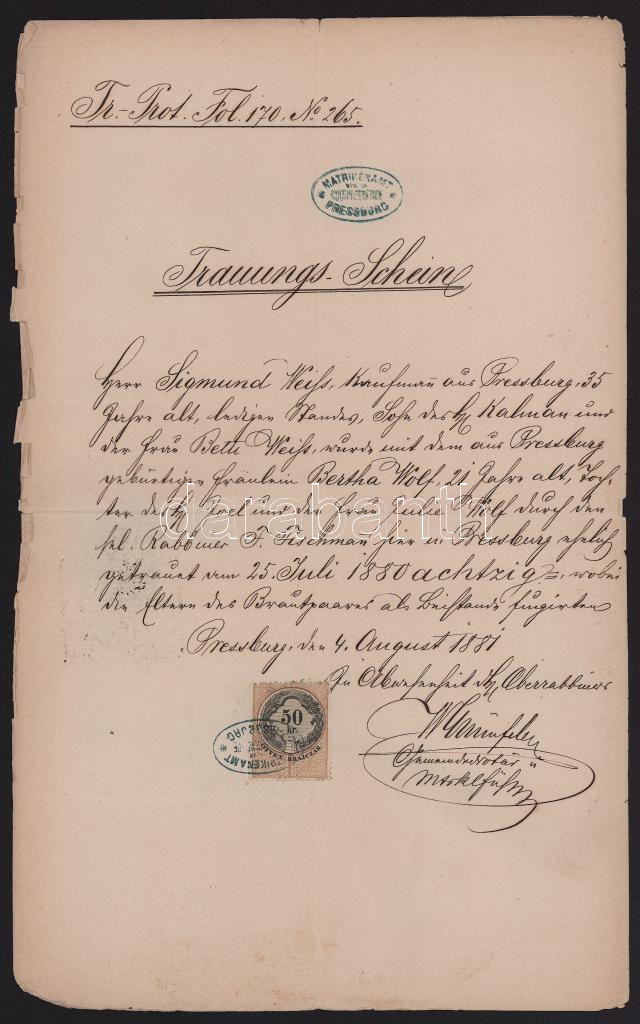 Tr.-Prot. Fol. 170. No 265.
* MATRIKENAMT *
PRESSBURG
Trauungs-Schein
Herr Sigmund Weiss, Kaufmañ aus Pressburg, 35
Jahre alt, ledigen Standes, Sohn des H. Kalman und
der Frau Betti Weiss, wurde mit dem aus Pressburg
gebürtigen Fräulein Bertha Wolf, 21 Jahre alt, Toch-
ter des H. Joel und der Frau Julie Wolf durch den
sel. Rabbiner F. Fischman hier in Pressburg ehelich
getrauet am 25. Juli 1880 achtzig, wobei
die Eltern des Brautpaares als Beistände fungirten
Pressburg, den 4. August 1881
In Abwesenheit d. H. Oberrabbiners
Gemeindenotär u
Matrklführer
50
kr.
ÖTVEN KRAJCZÁR
MATRIKENAMT *
PRESSBURG
darabanth